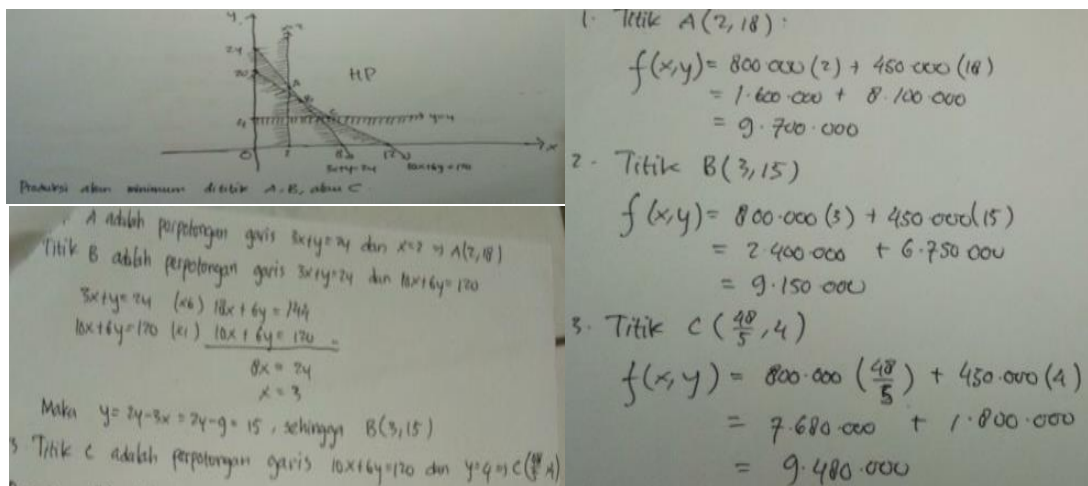 y
24
20
4
HP
A
B
C
y=4
0
2
8
12
x
3x+y=24
10x+6y=120
Produksi akan minimum dititik A, B, atau C.
A adalah perpotongan garis 3x+y=24 dan x=2 ⇒ A(2,18)
Titik B adalah perpotongan garis 3x+y=24 dan 10x+6y=120
3x+y=24 (x6) 18x+6y=144
10x+6y=120 (x1) 10x+6y=120 -
8x = 24
x = 3
Maka y=24-3x=24-9=15, sehingga B(3,15)
3 Titik C adalah perpotongan garis 10x+6y=120 dan y=4 ⇒ C(48/5,4)
1. Titik A(2,18):
f(x,y) = 800 000 (2) + 450 000 (18)
= 1.600.000 + 8.100.000
= 9.700.000
2. Titik B(3,15)
f(x,y) = 800.000 (3) + 450 000(15)
= 2.400.000 + 6.750 000
= 9.150 000
3. Titik C (48/5, 4)
f(x,y) = 800.000 (48/5) + 450.000 (4)
= 7.680 000 + 1.800.000
= 9.480.000